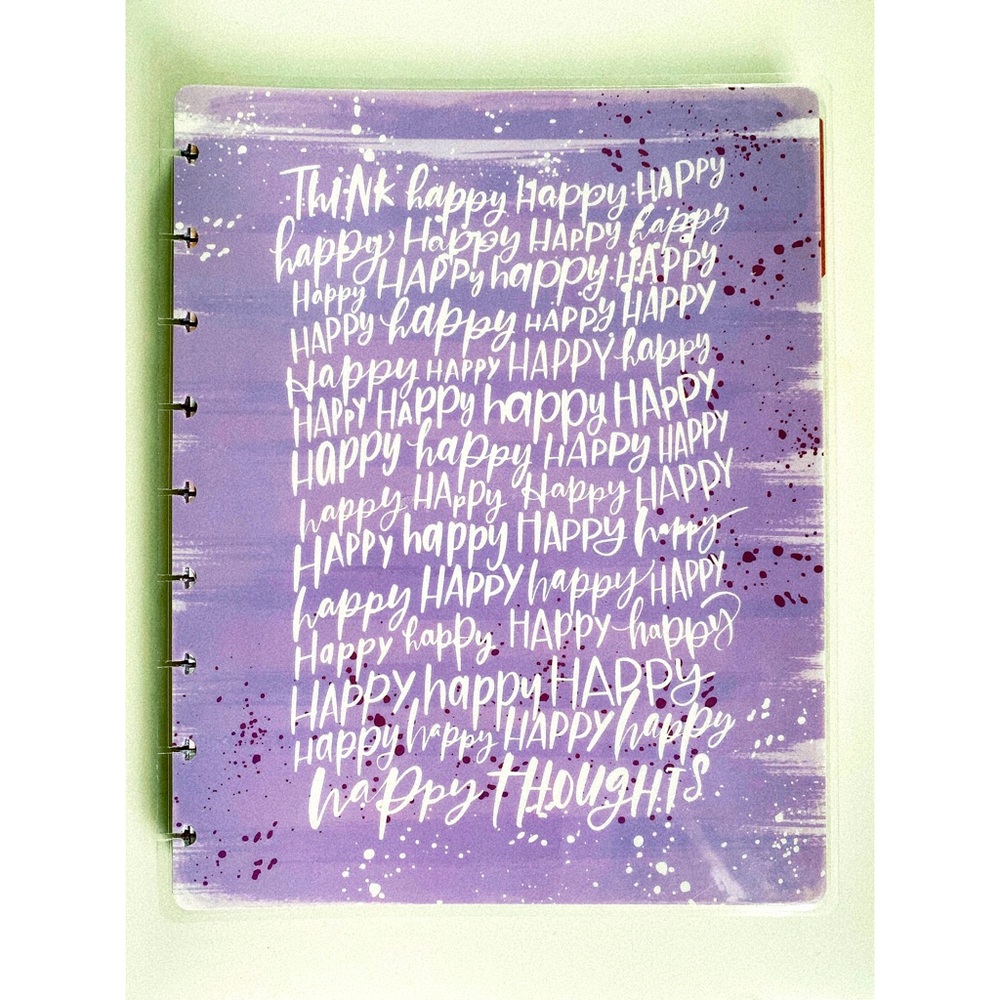 THINK happy Happy HAPPY
happy Happy HAPPY happy
Happy HAPPy happy HAPPY
HAPPY happy HAPPY HAPPY
Happy HAPPY HAPPY happy
HAPPY HAPPY happy HAPPY
HAPPY happy HAPPY HAPPY
happy HAppy Happy HAPPY
HAPPY happy HAPPY happy
happy HAPPY happy HAPPY
Happy happy HAPPY happy
HAPPY happy HAPPY
HAPPY happy HAPPY happy
happy THOUGHTS